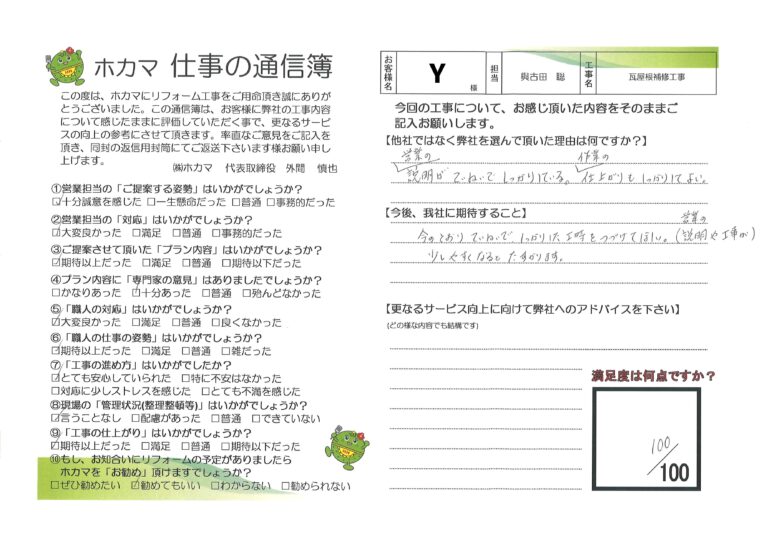 ホカマ 仕事の通信簿
この度は、ホカマにリフォーム工事をご用命頂き誠にありが
とうございました。この通信簿は、お客様に弊社の工事内容
について感じたままに評価していただく事で、更なるサービ
スの向上の参考にさせて頂きます。率直なご意見をご記入を
頂き、同封の返信用封筒にてご返送下さいます様お願い申し
上げます。
㈱ホカマ 代表取締役 外間 慎也
①営業担当の「ご提案する姿勢」はいかがでしょうか?
☑十分誠意を感じた □一生懸命だった □普通 □事務的だった
②営業担当の「対応」はいかがでしょうか?
☑大変良かった □満足 □普通 □事務的だった
③ご提案させて頂いた「プラン内容」はいかがでしょうか?
☑期待以上だった □満足 □普通 □期待以下だった
④プラン内容に「専門家の意見」はありましたでしょうか?
□かなりあった ☑十分あった □普通 □殆んどなかった
⑤「職人の対応」はいかがでしょうか?
☑大変良かった □満足 □普通 □良くなかった
⑥「職人の仕事の姿勢」はいかがでしょうか?
☑期待以上だった □満足 □普通 □雑だった
⑦「工事の進め方」はいかがでしたか?
☑とても安心していられた □特に不安はなかった
□対応に少しストレスを感じた □とても不満を感じた
⑧現場の「管理状況(整理整頓等)」はいかがでしょうか?
☑言うことなし □配慮があった □普通 □できていない
⑨「工事の仕上がり」はいかがでしょうか?
☑期待以上だった □満足 □普通 □期待以下だった
⑩もし、お知合いにリフォームの予定がありましたら
ホカマを「お勧め」頂けますでしょうか?
□ぜひ勧めたい ☑勧めてもいい □わからない □勧められない
お客様名 Y 様 担当 與古田 聡 工事名 瓦屋根補修工事
今回の工事について、お感じ頂いた内容をそのままご
記入お願いします。
【他社ではなく弊社を選んで頂いた理由は何ですか?】
営業の 作業の
説明がていねいでしっかりしている。仕上がりもしっかりしてよい。
【今後、我社に期待すること】
営業の
今のとおりていねいでしっかりした工事をつづけてほしい。(説明や工事が)
少しやすくなるとたすかります。
【更なるサービス向上に向けて弊社へのアドバイスを下さい】
(どの様な内容でも結構です)
満足度は何点ですか?
100
/100